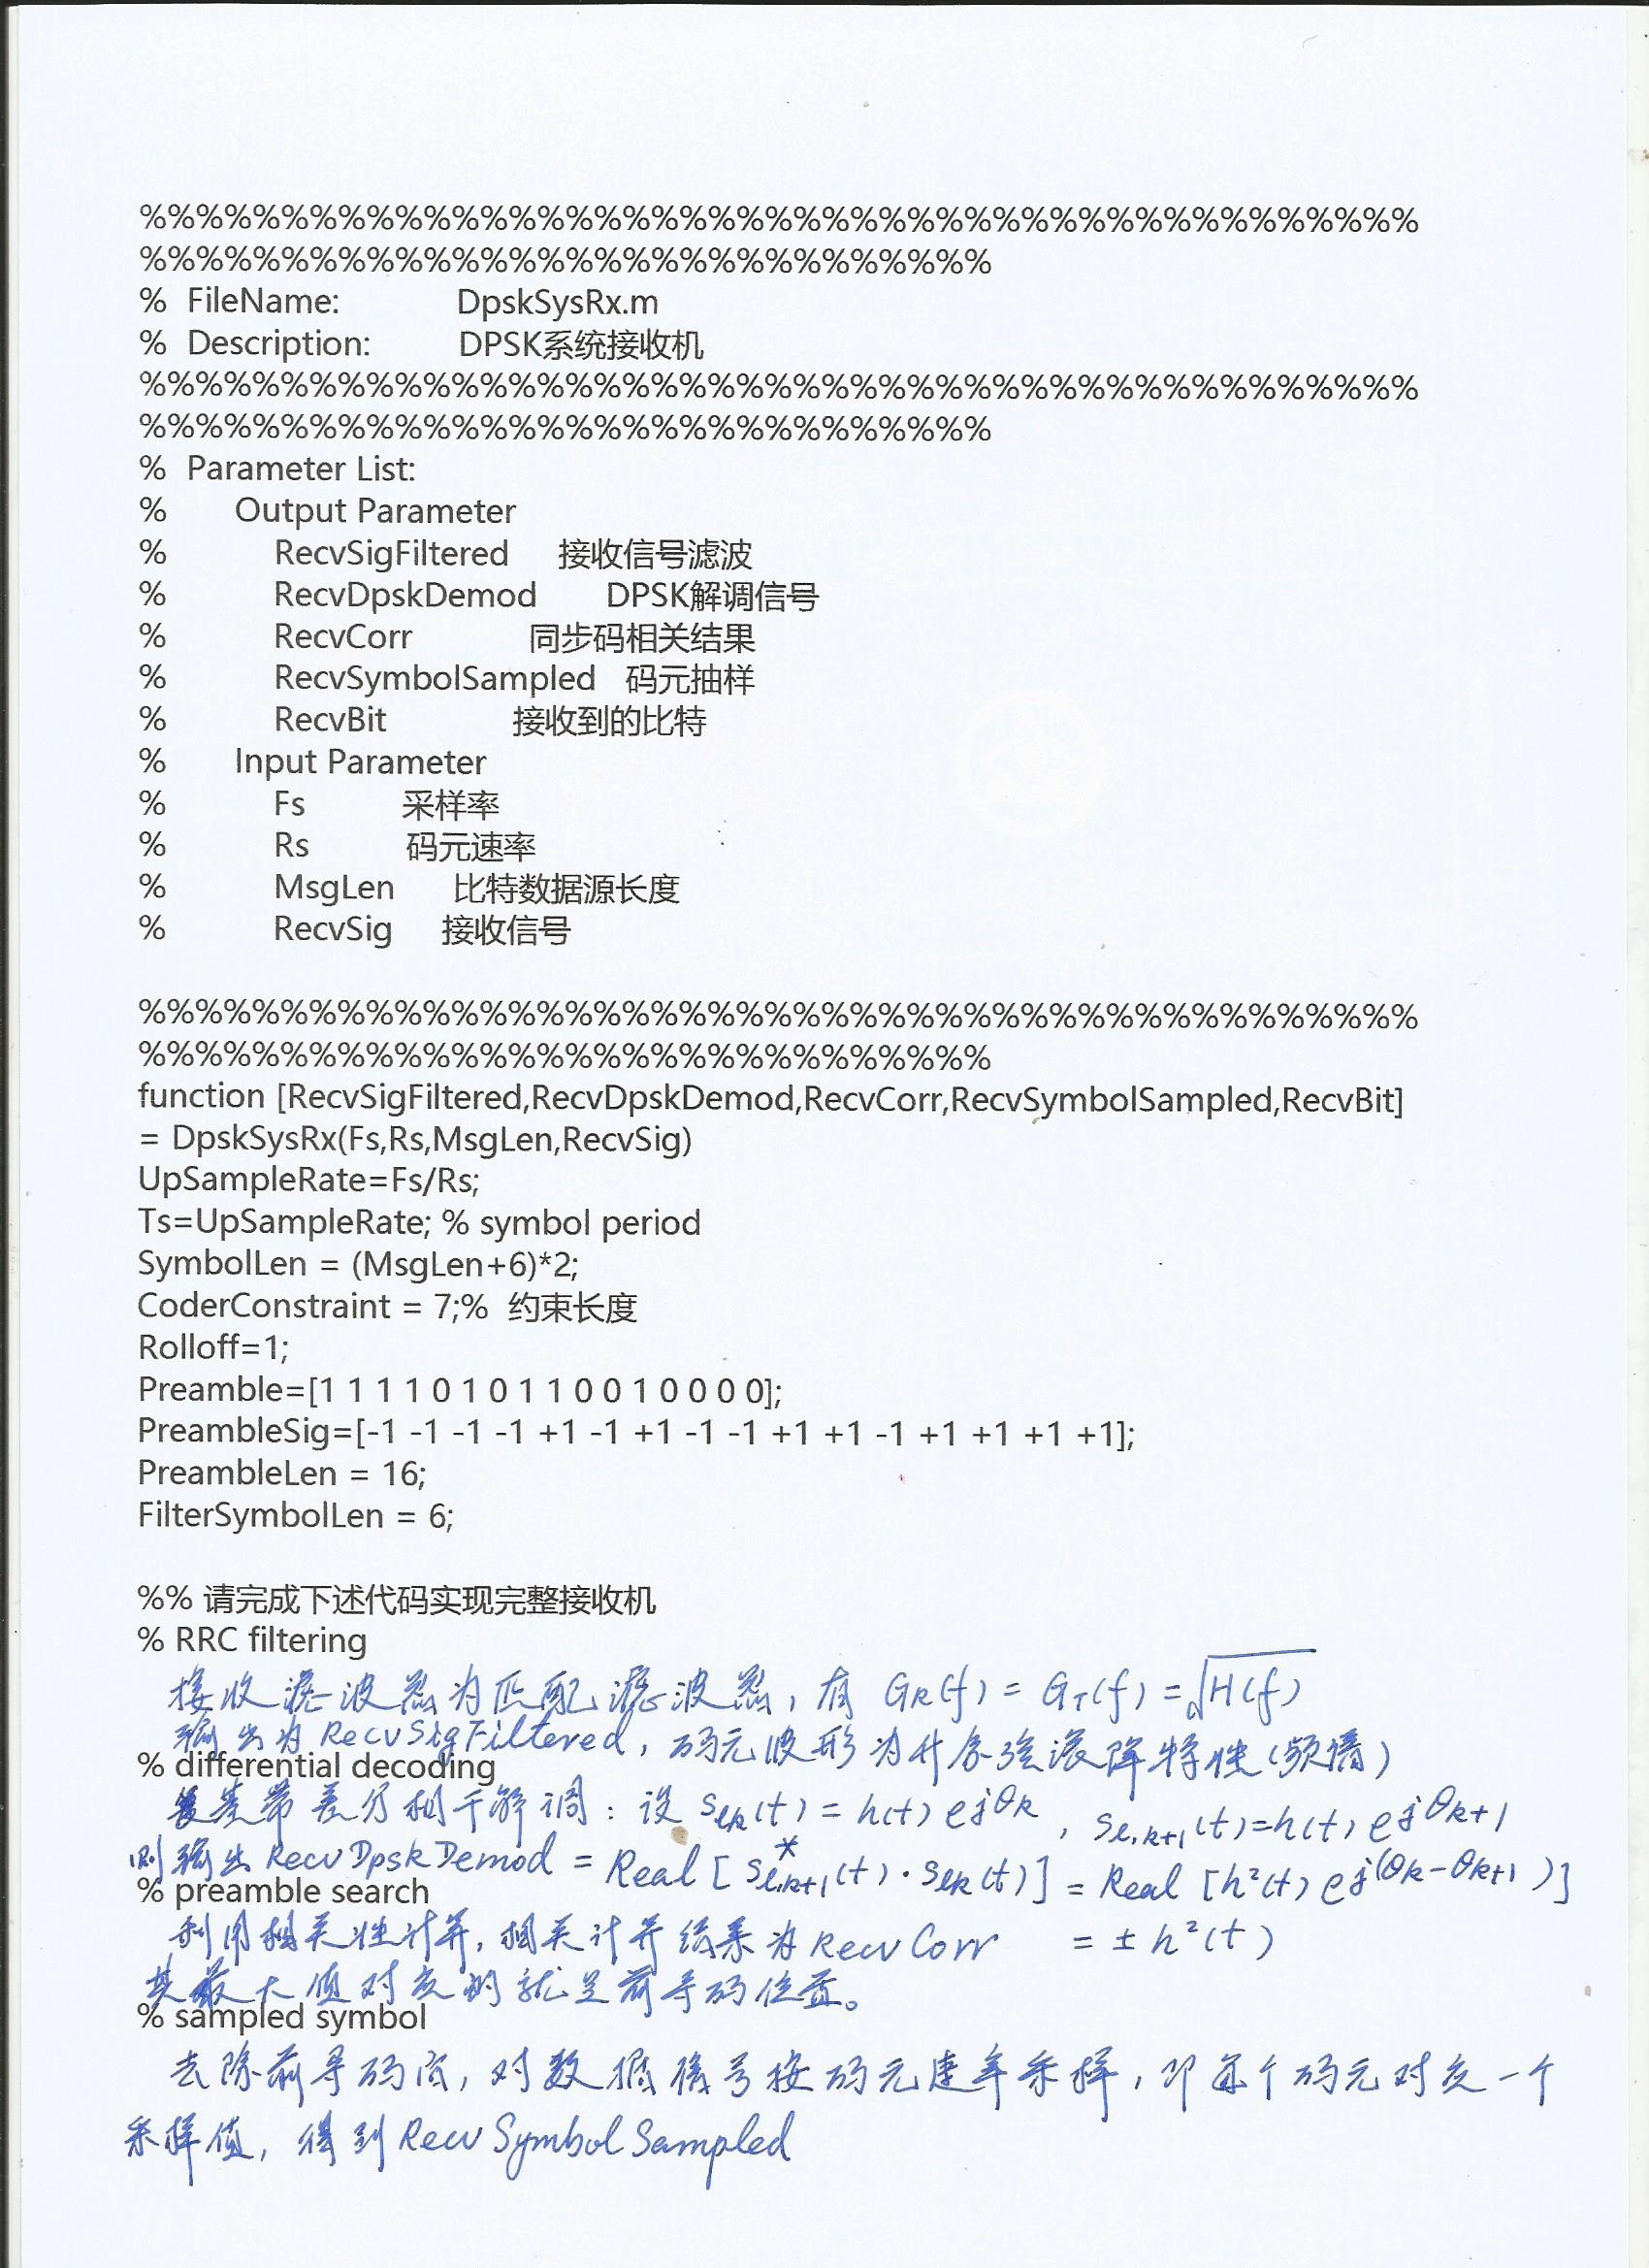 %%%%%%%%%%%%%%%%%%%%%%%%%%%%%%%%%%%%%%%%%%%%%
%%%%%%%%%%%%%%%%%%%%%%%%%%%%%%
% FileName: DpskSysRx.m
% Description: DPSK系统接收机
%%%%%%%%%%%%%%%%%%%%%%%%%%%%%%%%%%%%%%%%%%%%%
%%%%%%%%%%%%%%%%%%%%%%%%%%%%%%
% Parameter List:
% Output Parameter
% RecvSigFiltered 接收信号滤波
% RecvDpskDemod DPSK解调信号
% RecvCorr 同步码相关结果
% RecvSymbolSampled 码元抽样
% RecvBit 接收到的比特
% Input Parameter
% Fs 采样率
% Rs 码元速率
% MsgLen 比特数据源长度
% RecvSig 接收信号
%%%%%%%%%%%%%%%%%%%%%%%%%%%%%%%%%%%%%%%%%%%%%
%%%%%%%%%%%%%%%%%%%%%%%%%%%%%%
function [RecvSigFiltered,RecvDpskDemod,RecvCorr,RecvSymbolSampled,RecvBit]
= DpskSysRx(Fs,Rs,MsgLen,RecvSig)
UpSampleRate=Fs/Rs;
Ts=UpSampleRate; % symbol period
SymbolLen = (MsgLen+6)*2;
CoderConstraint = 7;% 约束长度
Rolloff=1;
Preamble=[1 1 1 1 0 1 0 1 1 0 0 1 0 0 0 0];
PreambleSig=[-1 -1 -1 -1 +1 -1 +1 -1 -1 +1 +1 -1 +1 +1 +1 +1];
PreambleLen = 16;
FilterSymbolLen = 6;
%% 请完成下述代码实现完整接收机
% RRC filtering
接收滤波器为匹配滤波器, 有 GR(f) = GT(f) = √H(f)
输出为RecvSigFiltered, 码元波形为升余弦滚降特性(频谱)
% differential decoding
基带差分相干解调: 设 slk(t) = h(t) e^jθk, sl,k+1(t)=h(t) e^jθk+1
则输出 RecvDpskDemod = Real [ s*l,k+1(t) · slk(t)] = Real [h²(t) e^j(θk-θk+1)]
% preamble search
利用相关性计算, 相关计算结果为RecvCorr = ± h²(t)
其最大值对应的就是前导码位置。
% sampled symbol
去除前导码后, 对数据信号按码元速率采样, 即每个码元对应一个
采样值, 得到 RecvSymbolSampled